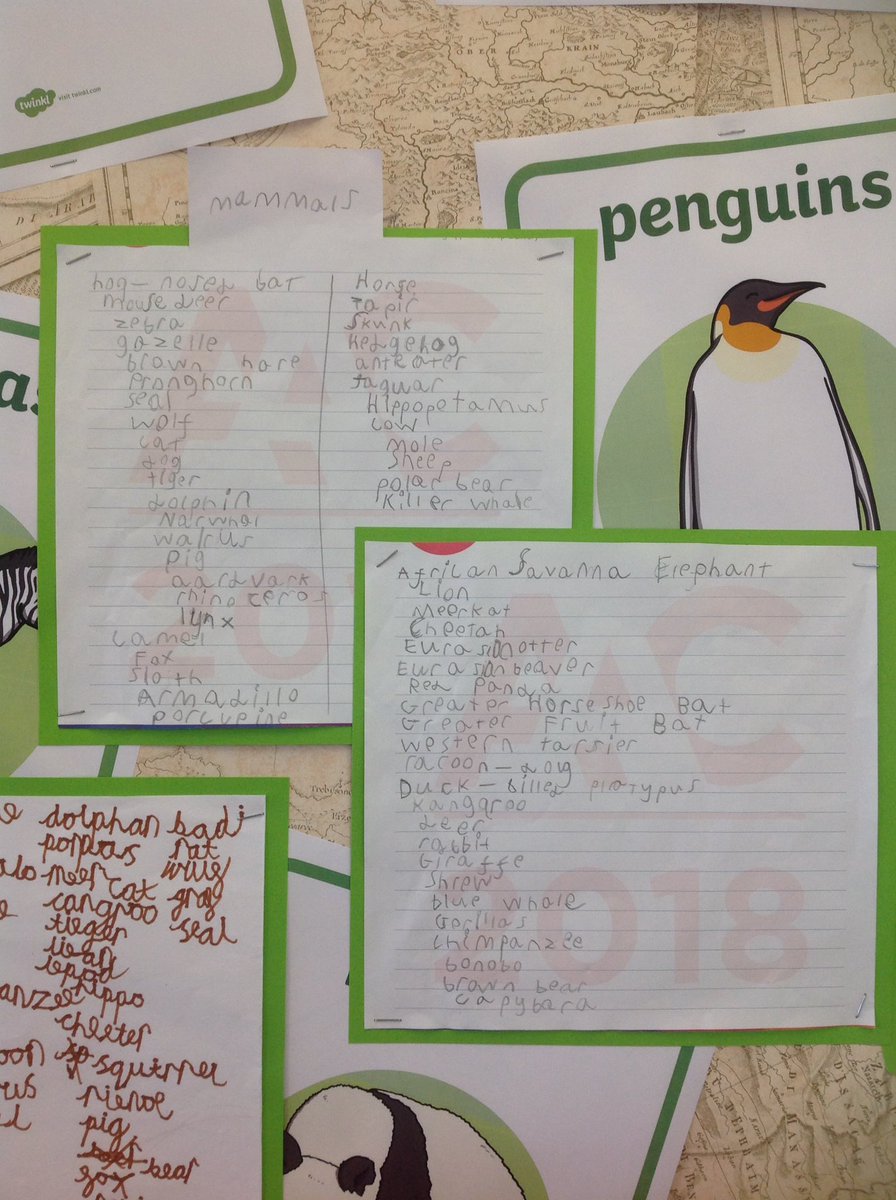 twinkl
visit twinkl.com
OBER
KRAIN
penguins
mammals
hog- nosed bat
mouse deer
zebra
gazelle
brown hare
Pronghorn
seal
wolf
cat
dog
tiger
dolphin
Narwhal
walrus
pig
aardvark
rhinoceros
lynx
camel
Fox
Sloth
Armadillo
porcupine
Horse
Tapir
Skunk
Hedgehog
anteater
Jaguar
Hippopotamus
cow
mole
Sheep
polar bear
Killer whale
African Savanna Elephant
Lion
Meerkat
Cheetah
Red Panda
Greater Horseshoe Bat
Greater Fruit Bat
western tarsier
racoon-dog
Duck-billed platypus
kangaroo
deer
rabbit
Giraffe
Shrew
blue whale
Gorillas
chimpanzee
bonobo
brown bear
capybara
2018
dolphan badj
rat
meercat
cangroo
tieger
seal
hippo
cheeter
squirrer
pig
bear